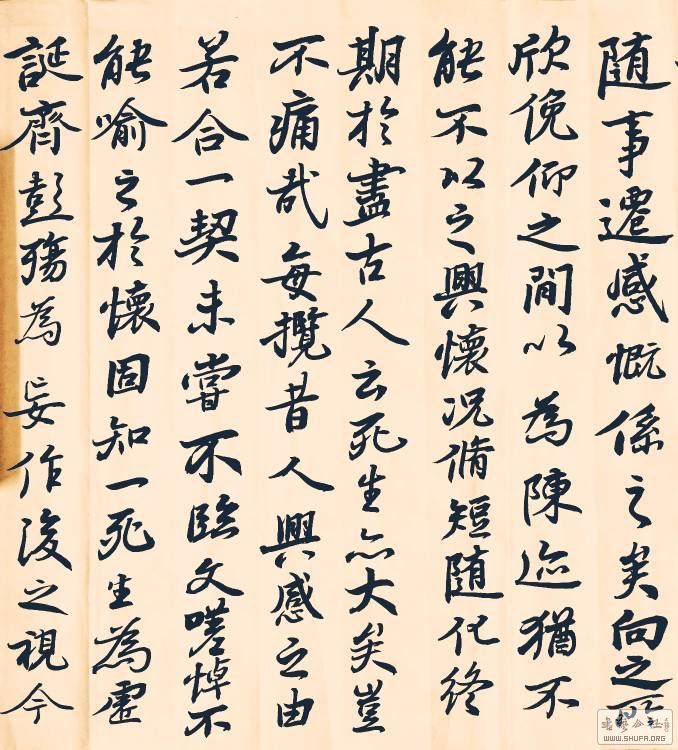 随事遷感慨係之矣向之所
欣俛仰之間以為陳迹猶不
能不以之興懷况脩短随化終
期於盡古人云死生亦大矣豈
不痛哉每攬昔人興感之由
若合一契未嘗不臨文嗟悼不
能喻之於懷固知一死生為虛
誕齊彭殤為妄作後之視今
WWW.SHUFA.ORG